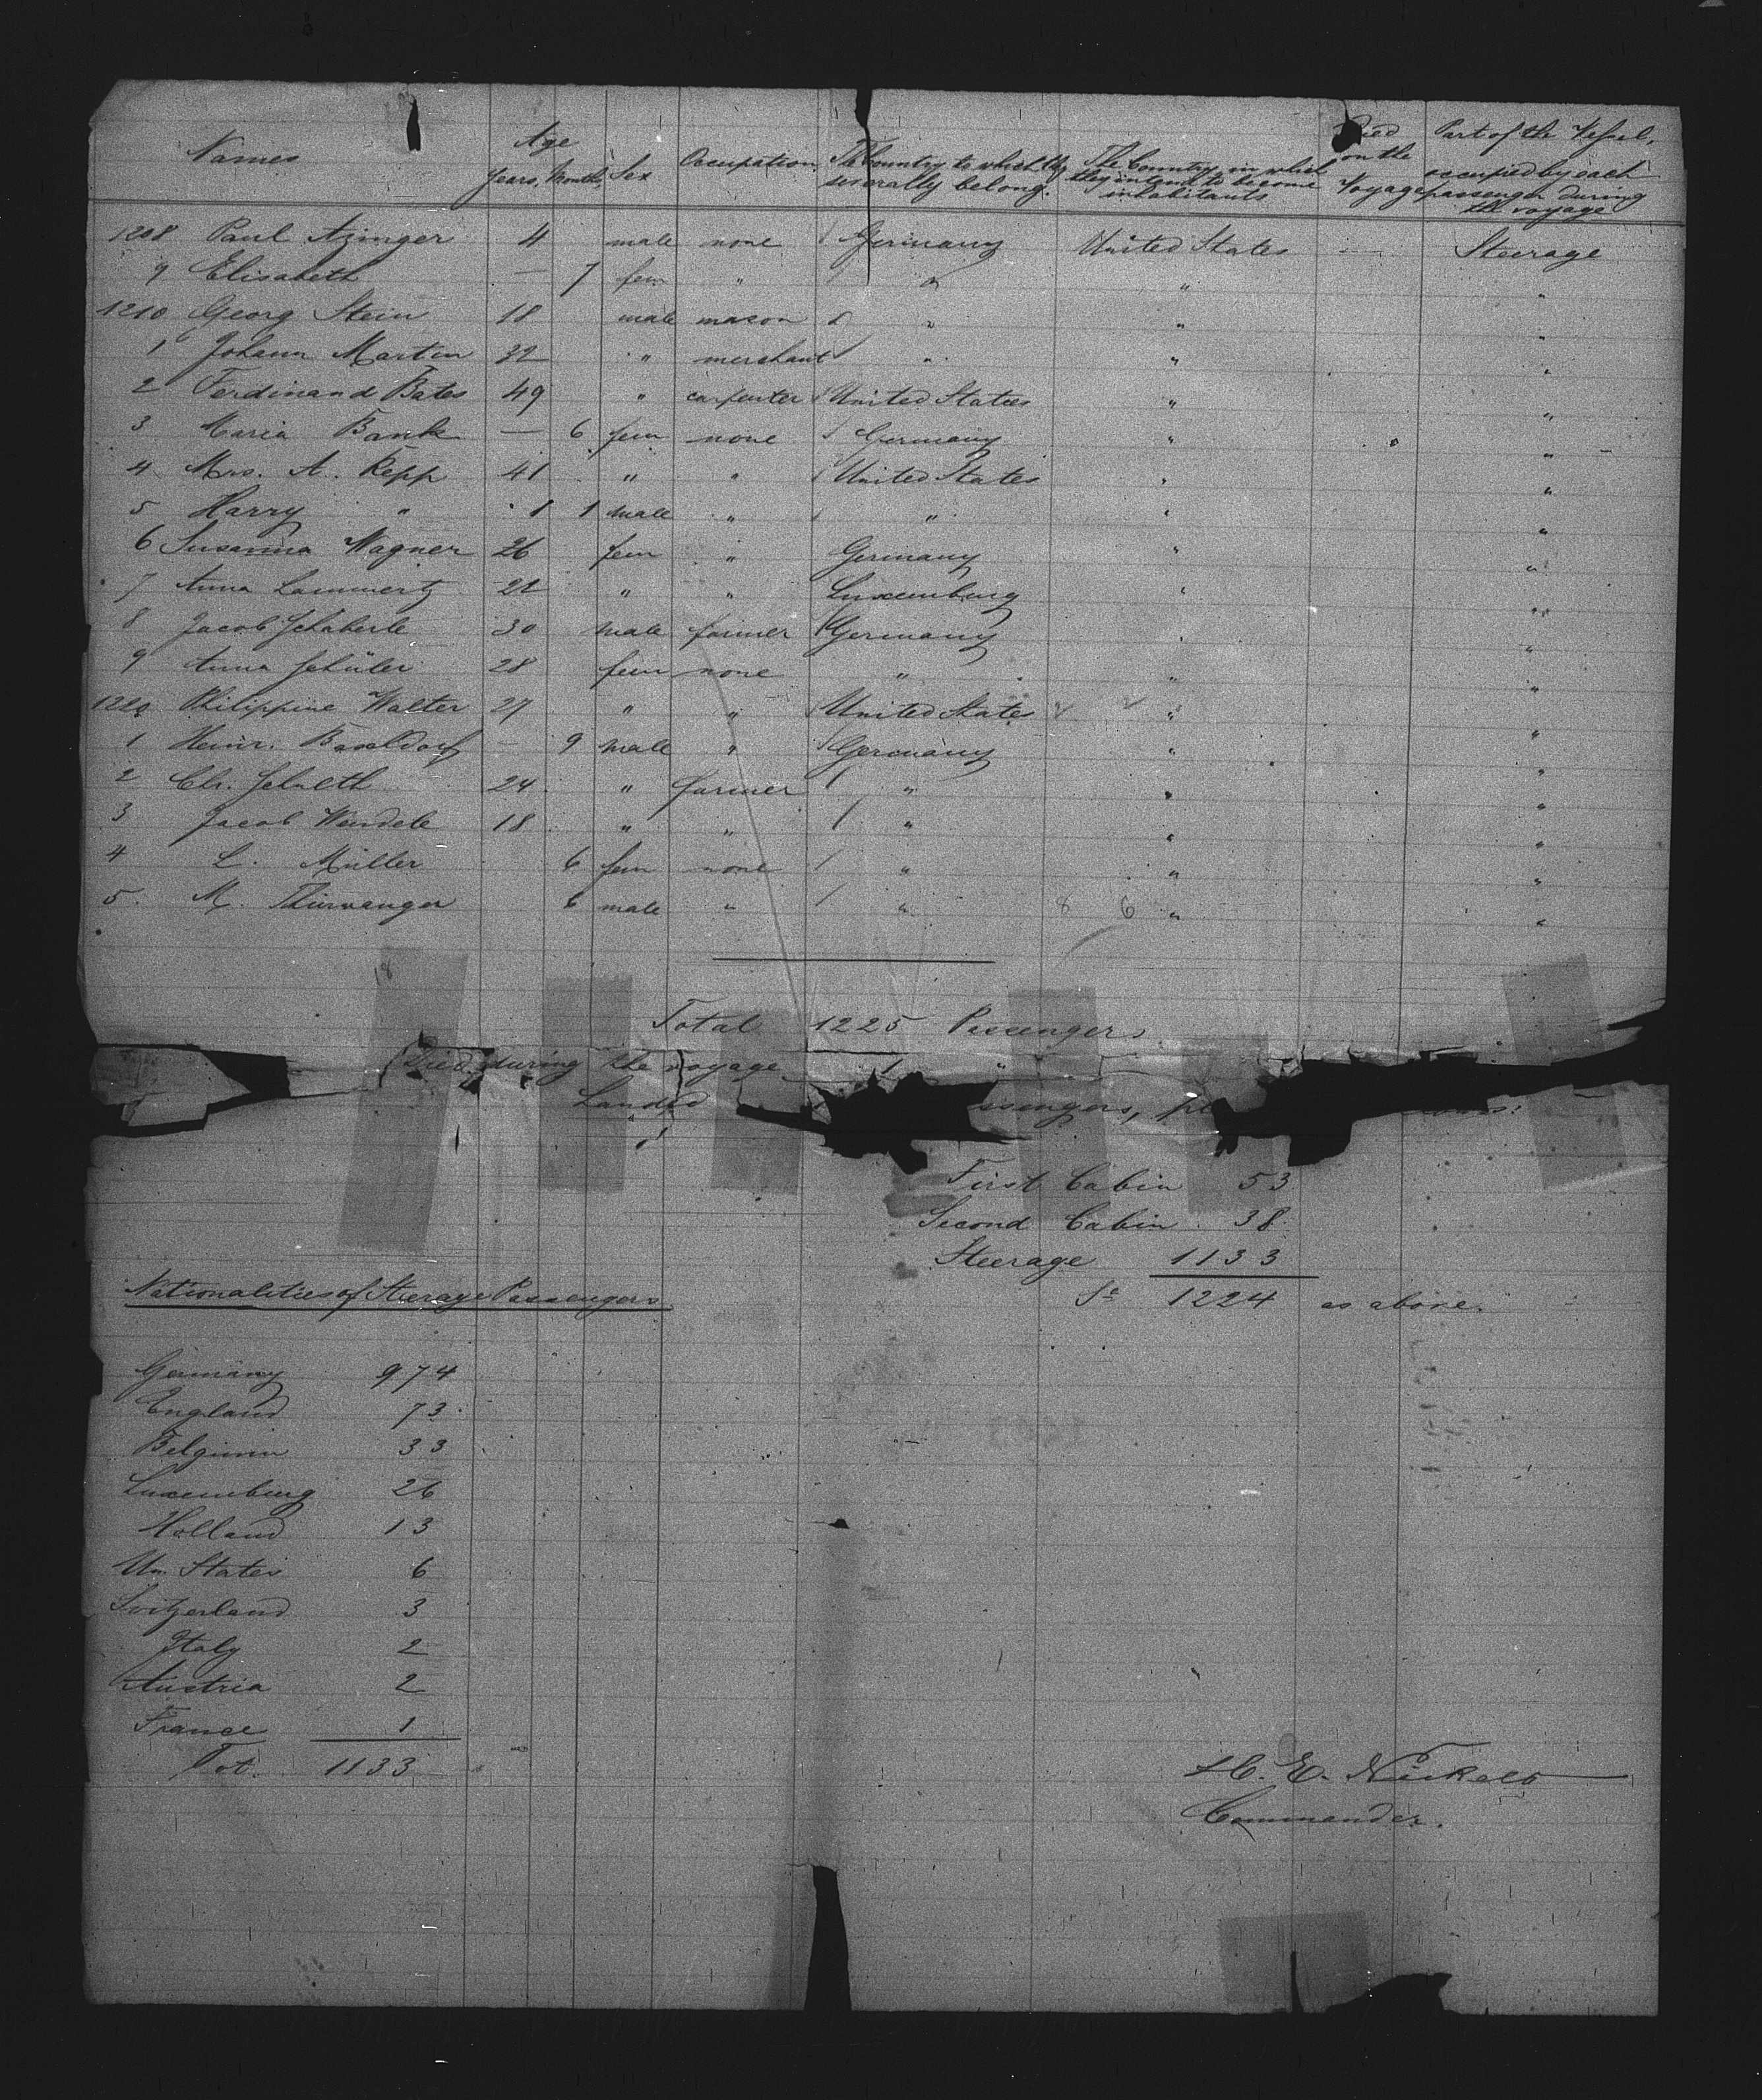 Names
Age
Years, Months,
Sex
Occupation
The Country to which they severally belong.
The Country in which they intend to become inhabitants
Died on the Voyage
Part of the Vessel, occupied by each passenger during the voyage
1208 Paul Azinger 4 male none Germany United States Steerage
9 Elisabeth — 7 fem " " " "
1210 Georg Stein 18 male mason " " "
1 Johann Martin 32 " merchant " " "
2 Ferdinand Bates 49 " carpenter United States " "
3 Maria Bank — 6 fem none Germany " "
4 Mrs. A. Repp 41 " " United States " "
5 Harry " 1 1 male " " " "
6 Susanna Wagner 26 fem " Germany " "
7 Anna Lammertz 21 " " Luxemburg " "
8 Jacob Schaberle 30 male farmer Germany " "
9 Anna Schüler 28 fem none " " "
1220 Philippine Walter 27 " " United States " "
1 Heinr. — 9 male " Germany " "
2 Chr. 24 " farmer " " "
3 Jacob Wendele 18 " " " " "
4 L. Müller 6 fem none " " "
5. M. 6 male " " 8 6 " "
18
Total 1225 Passengers
Died during the voyage 1 "
Landed
First Cabin 53
Second Cabin 38
Steerage 1133
1224 as above.
Nationalities of Steerage Passengers
Germany 974
England 73
Belgium 33
Luxemburg 26
Holland 13
Un. States 6
Switzerland 3
Italy 2
Austria 2
France 1
Tot. 1133
H. E. Nickels
Commander.